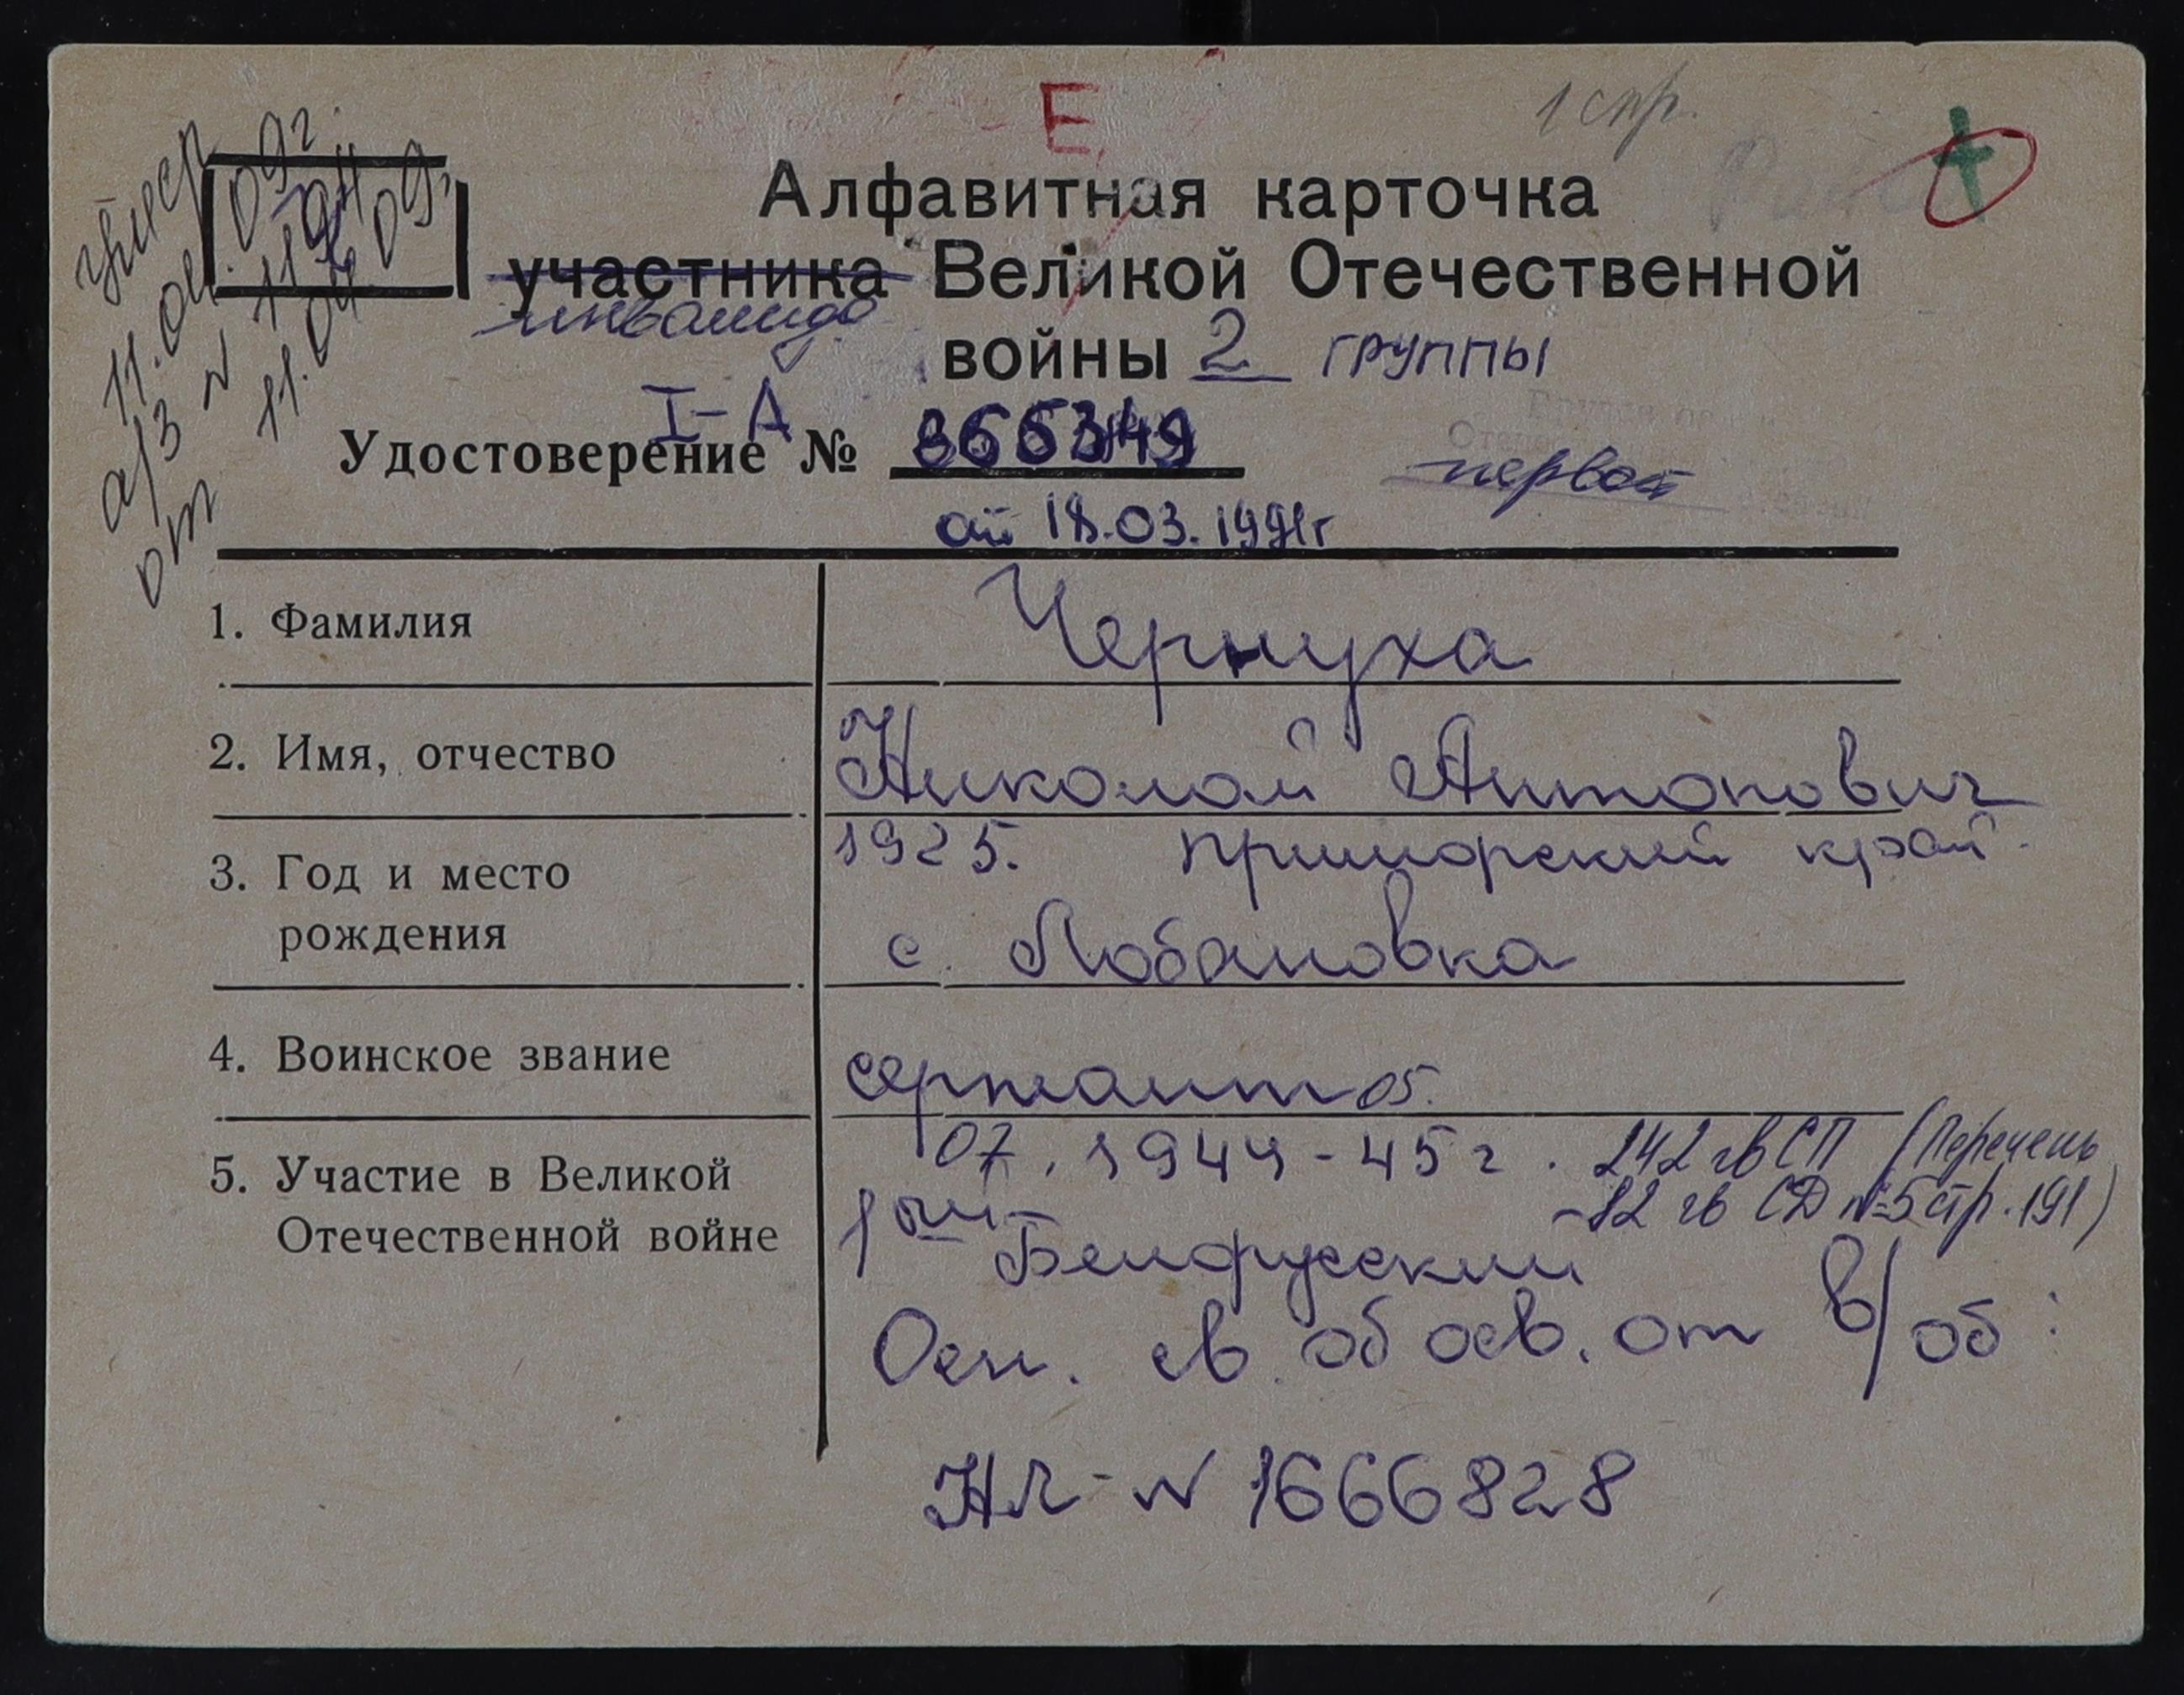 Е
1 спр.
умер
11.04.09г.
а/з № 1194
от 11.04.09.
Алфавитная карточка
участника Великой Отечественной
инвалида
войны 2 группы
I-А
Удостоверение №
первой
от 18.03.1991г
1. Фамилия Чернуха
2. Имя, отчество Николай Антонович
3. Год и место рождения 1925. Приморский край.
с. Лобановка
4. Воинское звание сержант
05.
5. Участие в Великой Отечественной войне 07.1944-45г. 242 гв СП (Перечень
1ый Белорусский - 82 гв СД №5 стр. 191)
Осн. св. об осв. от в/об:
НЛ - № 1666828